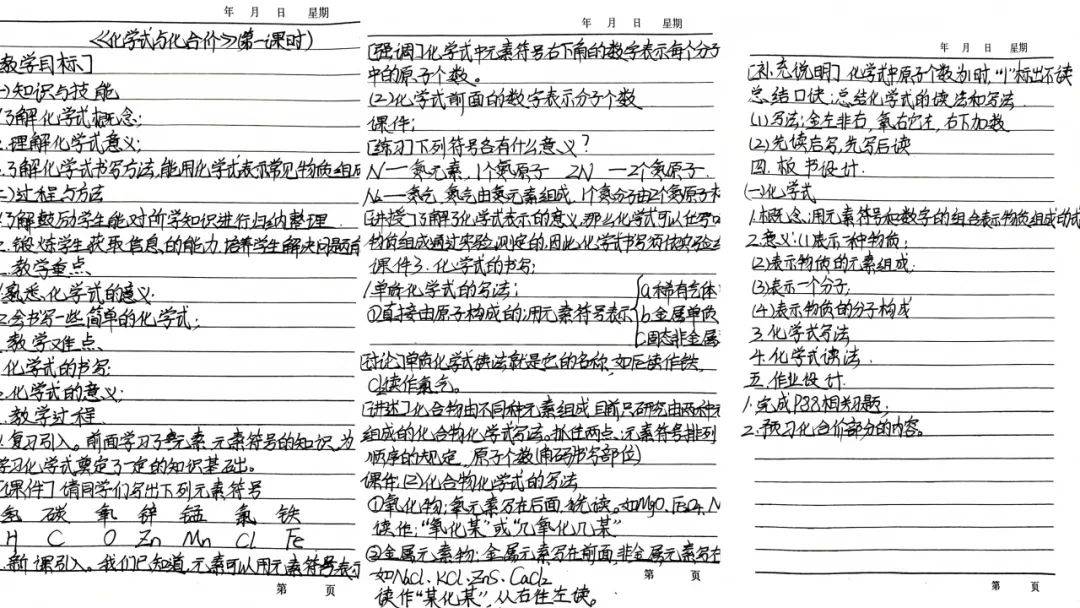 年 月 日 星期
《化学式与化合价》(第一课时)
教学目标]
一)知识与技能
了解化学式概念;
2.理解化学式意义;
.了解化学式书写方法,能用化学式表示常见物质组成
二)过程与方法
了解鼓励学生能对所学知识进行归纳整理
2.锻炼学生获取信息的能力,培养学生解决问题
.教学重点
1.熟悉化学式的意义.
2.会书写一些简单的化学式;
.教学难点
.化学式的书写;
.化学式的意义;
.教学过程
.复习引入。前面学习了元素,元素符号的知识,为
学习化学式奠定了一定的知识基础。
[课件]请同学们写出下列元素符号
氢 碳 氧 锌 锰 氯 铁
H C O Zn Mn Cl Fe
.新课引入。我们已知道,元素可以用元素符号表示
第 页
年 月 日 星期
[强调]化学式中元素符号右下角的数字表示每个分子
中的原子个数。
(2)化学式前面的数字表示分子个数
课件:
[练习]下列符号各有什么意义?
N—氮元素,1个氮原子 2N —2个氮原子.
N₂—氮气,氮气由氮元素组成,1个氮分子由2个氮原子
[讲授]了解了化学式表示的意义,那么化学式可以任写
物质组成通过实验测定的,因此化学式书写须依实验
课件3.化学式的书写:
1.单质化学式的写法:
①直接由原子构成的:用元素符号表示
a.稀有气体
b.金属单质
C.固态非金属
[讨论]单质化学式读法就是它的名称,如Fe读作铁,
Cl₂读作氯气。
[讲述]化合物由不同种元素组成,目前只研究由两种
组成的化合物化学式写法。抓住两点:元素符号排列
顺序的规定,原子个数(角码书写部位)
课件:(2)化合物化学式的写法
①氧化物:氧元素写在后面,先读。如MgO.Fe₃O₄.N
读作:“氧化某”或“几氧化几某”
②金属元素物:金属元素写在前面,非金属元素写在
如NaCl.KCl.ZnS.CaCl₂
读作“某化某”,从右往左读。
第 页
年 月 日 星期
[补充说明]化学式中原子个数为1时,“1”标出不读
总结口诀:总结化学式的读法和写法.
(1)写法:金左非右,氧右它左,右下加数
(2)先读后写,先写后读
四.板书设计.
(一)化学式
1.概念:用元素符号和数字的组合表示物质组成的式
2.意义:(1)表示一种物质;
(2)表示物质的元素组成.
(3)表示一个分子;
(4)表示物质的分子构成
3.化学式写法
4.化学式读法.
五.作业设计.
1.完成P88相关习题;
2.预习化合价部分的内容。
第 页